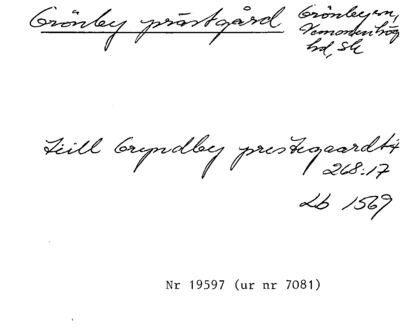 Grönby prästgård Grönby sn,
Vemmenhög
hd, Sk
till Gryndby prestegaardt 4
268:17
Lb 1569
Nr 19597 (ur nr 7081)